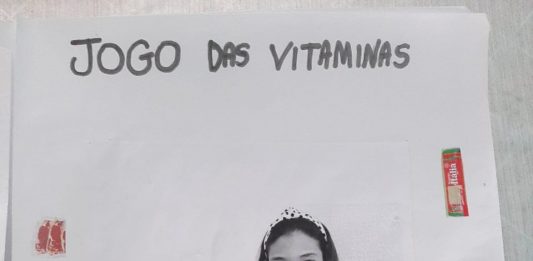 JOGO DAS VITAMINAS
Itália